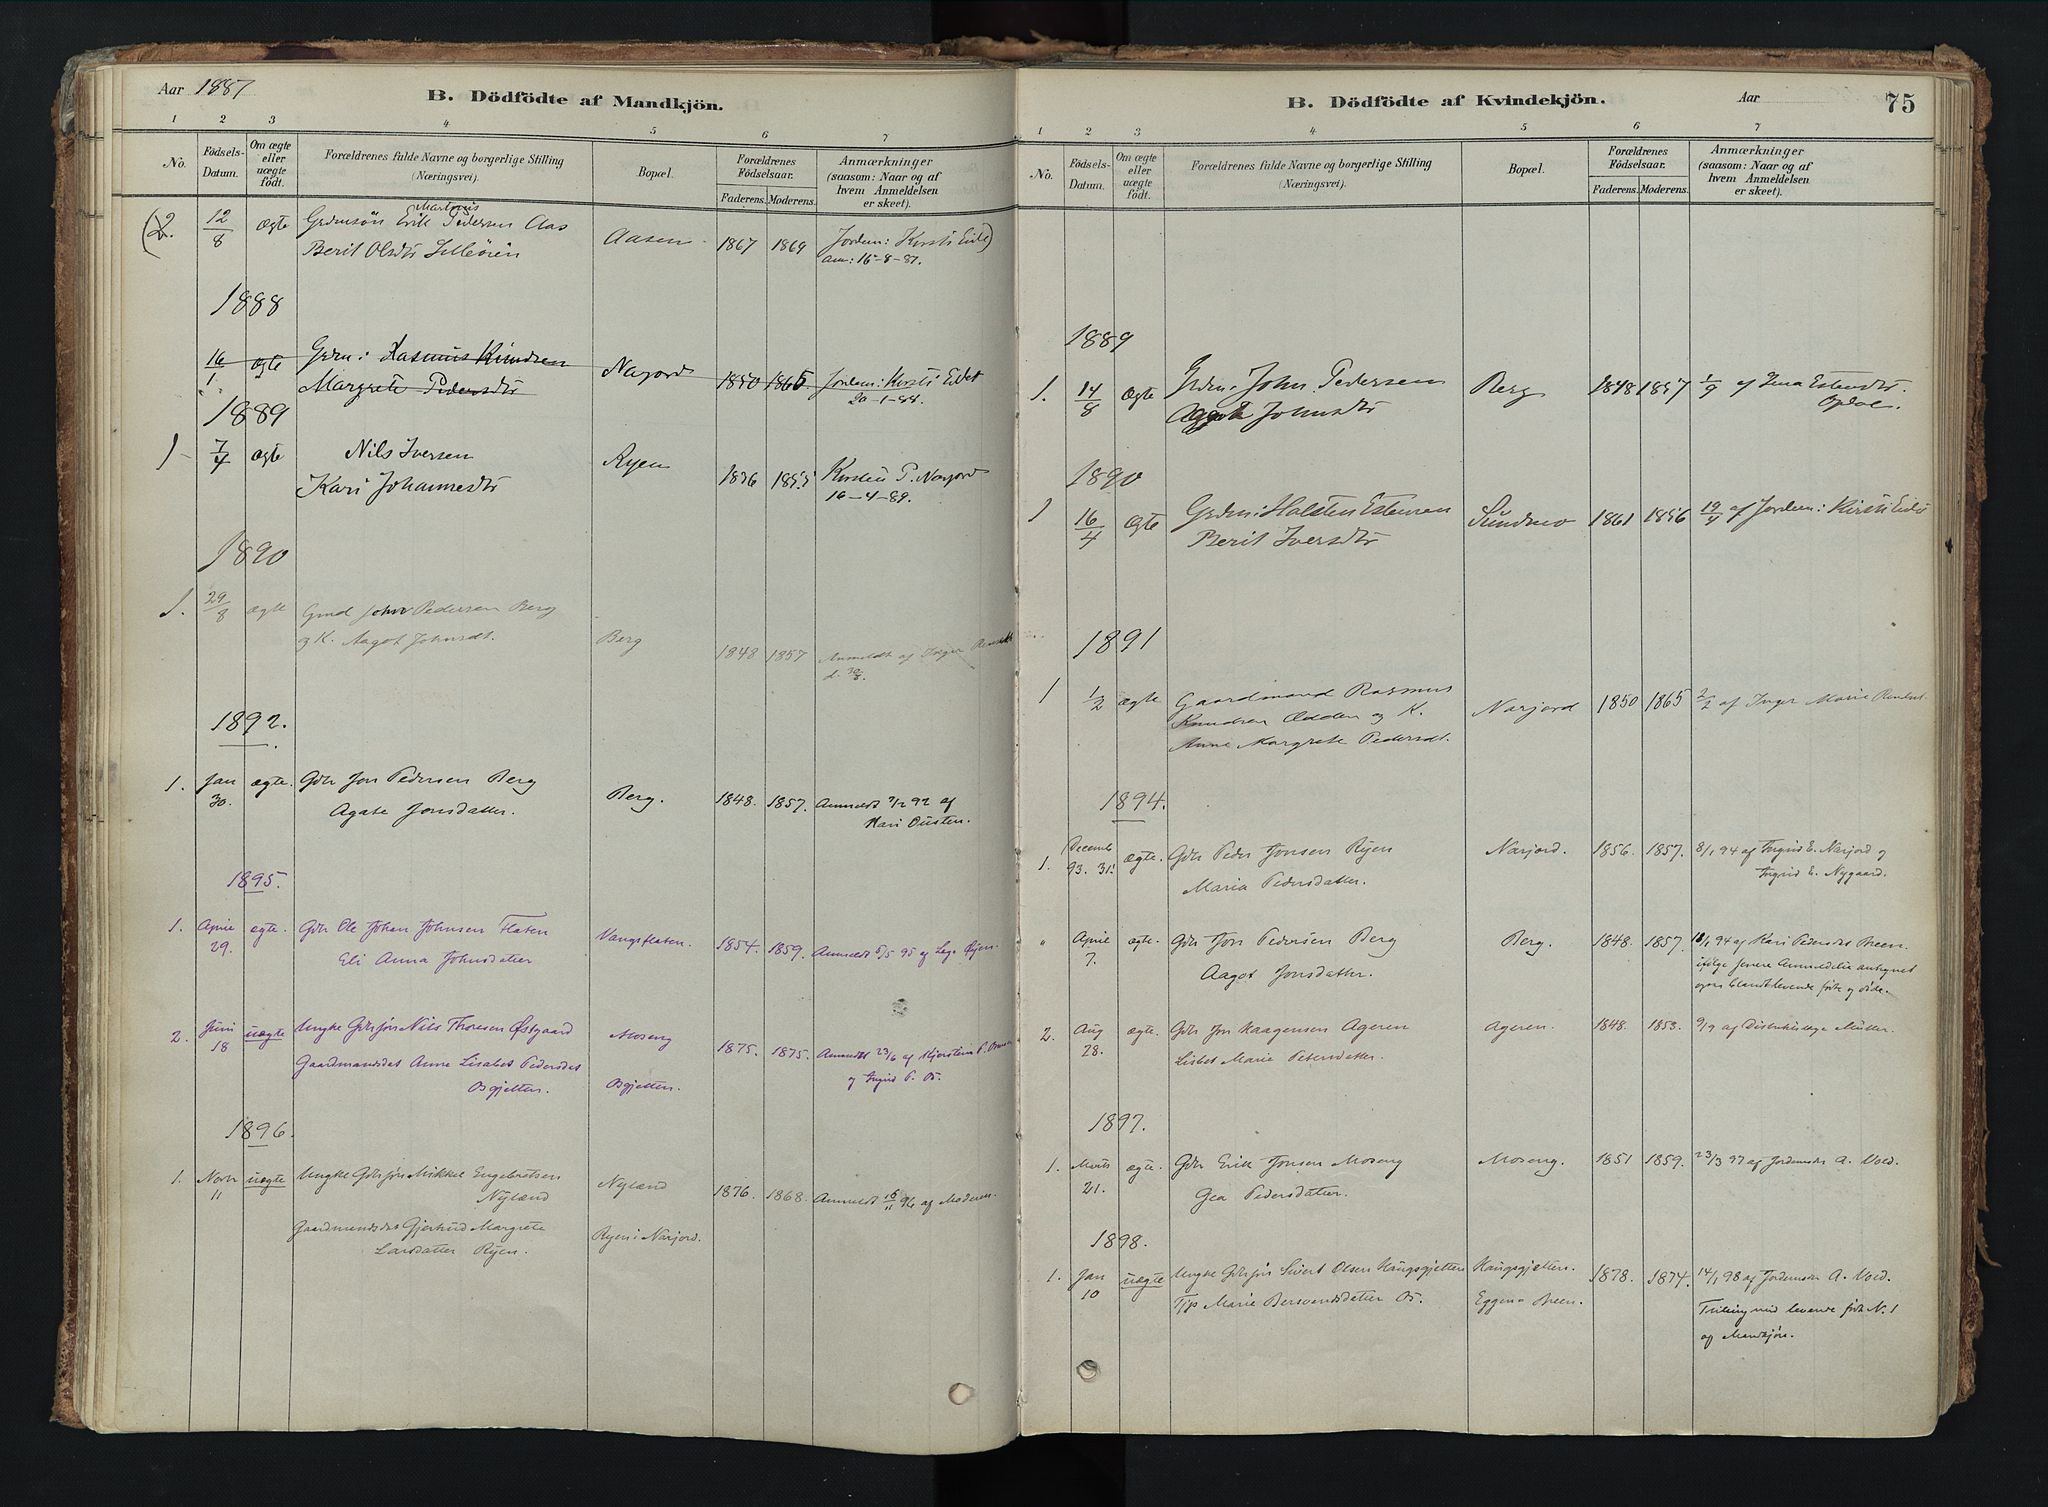 Aar 1887
B. Dödfödte af Mandkjön.
1 2 3 4 5 6 7
No.
Födsels-Datum.
Om ægte eller uægte födt.
Forældrenes fulde Navne og borgerlige Stilling (Næringsvei).
Bopæl.
Forældrenes Födselsaar.
Faderens. Moderens.
Anmærkninger (saasom: Naar og af hvem Anmeldelsen er skeet).
(2. 12/8 ægte Erik Martinus Pedersen Aas Aasen 1867 1869 Jordem: Kirsti Eidet)
Berit Olsdtr anm: 16-8-87.
1888
16/1 ægte Grdm: Rasmus Knudsen Narjord 1850 1865 Jordem: Kirsti Eidet
Margrete Pedersdtr 20-1-88.
1889
1 7/4 ægte Nils Iversen Ryen 1836 1855 Kirsten P. Narjord
Kari Johannesdtr 16-4-89.
1890
1. 29/8 ægte Gmd John Pedersen Berg
og K. Aagot Johnsdt. Berg 1848 1857 Anmeldt af Inger
d. 30/8.
1892.
1. Jan 30. ægte. Gbr Jon Pedersen Berg Berg. 1848. 1857. Anmeldt 92 af
Agate Jonsdatter. Kari Ousten.
1895.
1. April 29. ægte. Gbr Ole Johan Johnsen Flaten Vangsflaten. 1854. 1859. Anmeldt 5/5 95 af Læge Øyen.
Eli Anna Johnsdatter
2. Juni 18 uægte Ungkr Gbrsøn Nils Thoresen Østgaard Moseng 1875. 1875. Anmeldt 23/6 af Kjersten P.
Gaardmandsdat Anne Lisabet Pedersdat og Ingrid P. Os.
Osgjetten. Osgjetten.
1896.
1. Novbr 11 uægte Ungkr Gbrsøn Mikkel Engebretsen Nyland 1876. 1868. Anmeldt 16/11 96 af Moderen.
Nyland
Gaardmandsdat Gjertrud Margrete Ryen i Narjord.
Larsdatter Ryen.
B. Dödfödte af Kvindekjön.
Aar
75
1 2 3 4 5 6 7
No.
Födsels-Datum.
Om ægte eller uægte födt.
Forældrenes fulde Navne og borgerlige Stilling (Næringsvei).
Bopæl.
Forældrenes Födselsaar.
Faderens. Moderens.
Anmærkninger (saasom: Naar og af hvem Anmeldelsen er skeet).
1889
1. 14/8 ægte Grdm: John Pedersen Berg 1848 1857 1/9 af
Aagot Johnsdtr
1890
1 16/4 ægte Grdm: Halsten Estensen Sundmo 1861 1856 19/4 af Jordem: Kirsti Eidet
Berit Iversdtr
1891
1 1/2 ægte Gaardmand Rasmus Narjord 1850 1865 2/2 af Inger Marie
Knudsen Odden og K.
Anne Margrete Pedersdt.
1894.
1. Decemb 93. 31. ægte. Gbr Peder Jonsen Ryen Narjord. 1856. 1857. 8/1 94 af Ingrid E. Narjord og
Maria Pedersdatter. Ingrid E. Nygaard.
" April 7. ægte. Gbr Jon Pedersen Berg Berg. 1848. 1857. 94 af Kari Pedersdat Breen.
Aagot Jonsdatter. ifølge senere Anmeldelse antegnet
ogsaa blandt levende født og døde.
2. Aug 28. ægte. Gbr Jon Haagensen Ageren Ageren. 1848. 1853. 9/9 af Distriktslæge Müller.
Lisbet Marie Petersdatter.
1897.
1. Marts 21. ægte. Gbr Erik Jonsen Moseng Moseng. 1851 1859. 23/3 97 af Jordemdr A. Vold.
Gea Pedersdatter.
1898.
1. Jan 10 uægte Ungkr Gbrsøn Sivert Olsen Haugsgjetten Haugsgjetten. 1878. 1874. 14/1 98 af Jordemdr A. Vold.
Tjp Marie Bersvendsdatter Os. Eggena Breen. Tvilling med levende født N. 1
af Mandkjøn.